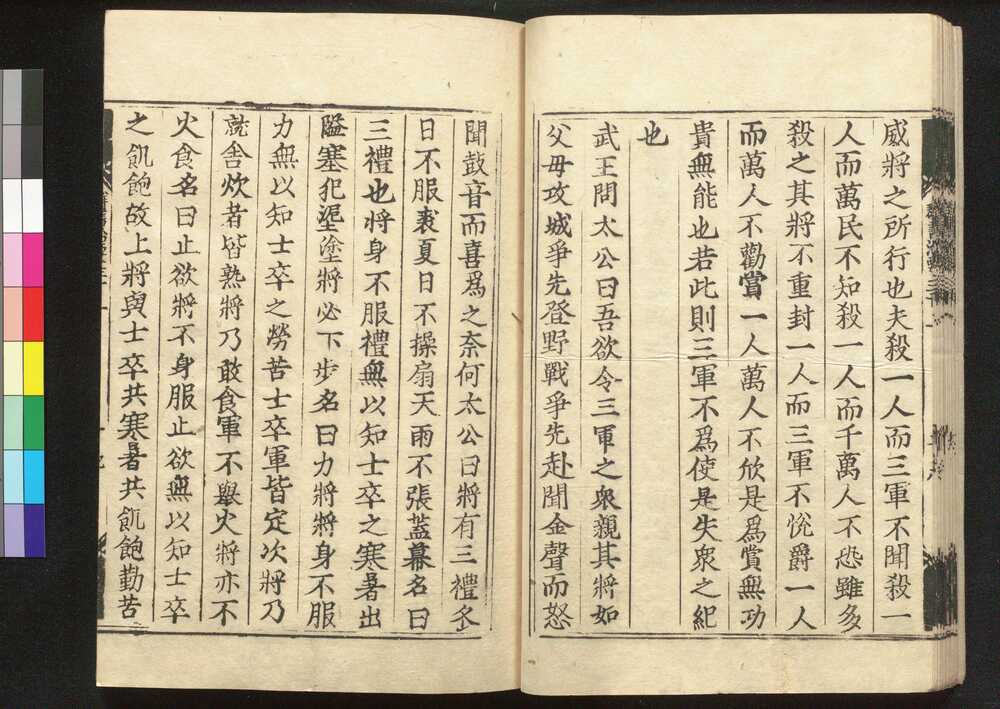 威將之所行也夫殺一人而三軍不聞殺一
人而萬民不知殺一人而千萬人不恐雖多
殺之其將不重封一人而三軍不恱爵一人
而萬人不勸賞一人萬人不欣是爲賞無功
貴無能也若此則三軍不爲使是失衆之紀
也
武王問太公曰吾欲令三軍之衆親其將如
父母攻城爭先登野戰爭先赴聞金聲而怒
聞鼓音而喜爲之奈何太公曰將有三禮冬
日不服裘夏日不操扇天雨不張蓋幕名曰
三禮也將身不服禮無以知士卒之寒暑出
隘塞犯埿塗將必下步名曰力將將身不服
力無以知士卒之勞苦士卒軍皆定次將乃
就舎炊者皆熟將乃敢食軍不舉火將亦不
火食名曰止欲將不身服止欲無以知士卒
之飢飽故上將與士卒共寒暑共飢飽勤苦